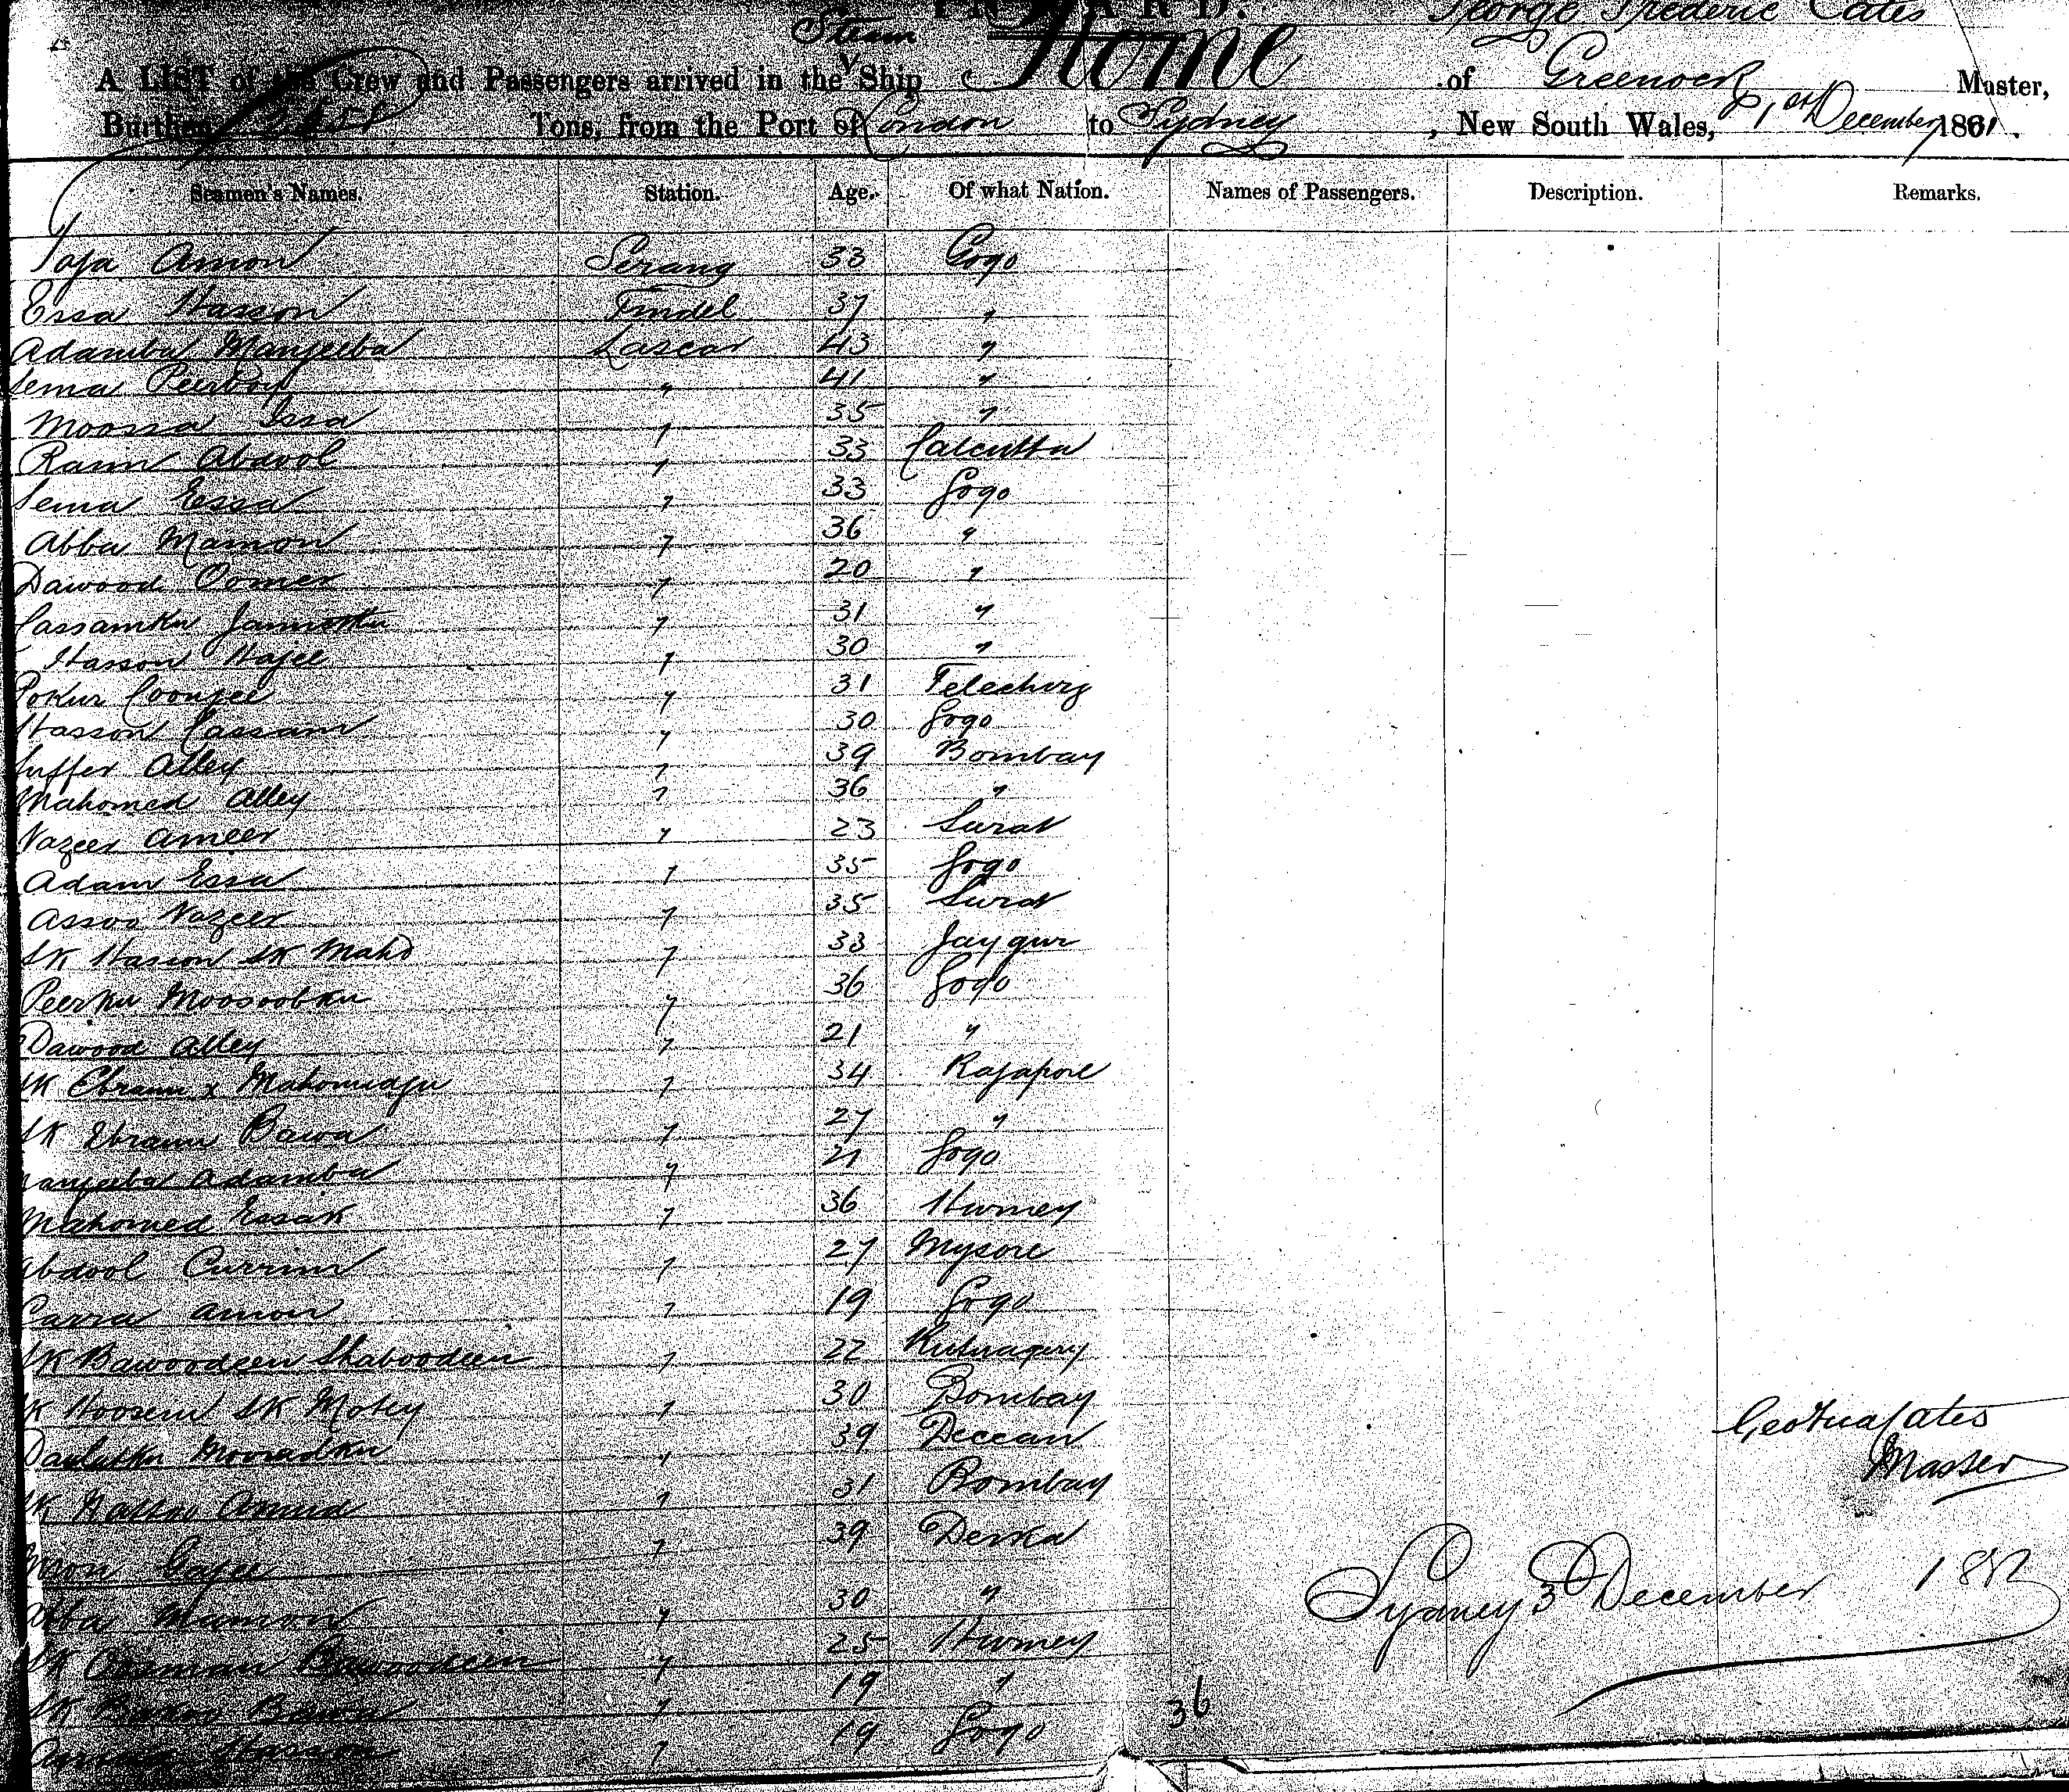 INWARD. George Frederic Cates
Steam
A LIST of the Crew and Passengers arrived in the Ship Rome of Greenock Master,
Burthen Tons, from the Port of London to Sydney, New South Wales, 1st December 1881.
Seamen's Names. Station. Age. Of what Nation. Names of Passengers. Description. Remarks.
Amon Serang 33 Gogo
Essa Hasson Tindel 37 "
Adamba Manjeeba Lascar 43 "
Jema Peerboy " 41 "
Moossa Issa " 35 "
Ram Abdool " 33 Calcutta
Jema Essa " 33 Gogo
Abba Mamon " 36 "
Dawood Oomer " 20 "
Cassamku " 31 "
Hasson Hajee " 30 "
Coonjee " 31
Hasson Cassam " 30 Gogo
Juffer Alley " 39 Bombay
Mahomed Alley " 36 "
Nazeer Ameer " 23 Surat
Adam Essa " 35 Gogo
Assoo Nazeer " 35 Surat
SK Hasson SK Mahd " 33 Jaygur
Peerku Moosobku " 36 Gogo
Dawood Alley " 21 "
SK Ebram x " 34 Rajapore
SK Ebram Bawa " 27 "
Manjeeba Adamba " 21 Gogo
Mahomed Essak " 36 Hurney
Abdool Currim " 27 Mysore
Amon " 19 Gogo
SK Bawoodeen Shaboodeen " 22
SK Hoosein SK Motey " 30 Bombay
Daulatku Mooradku " 39 Deccan
SK " 31 Bombay
Gajee " 39
Abba Mamon " 30 "
SK Oosman Bawoodeen " 25 Hurney
SK Bawa " 19 "
Hasson " 19 Gogo
Cates
Master
Sydney 3d December 188
36